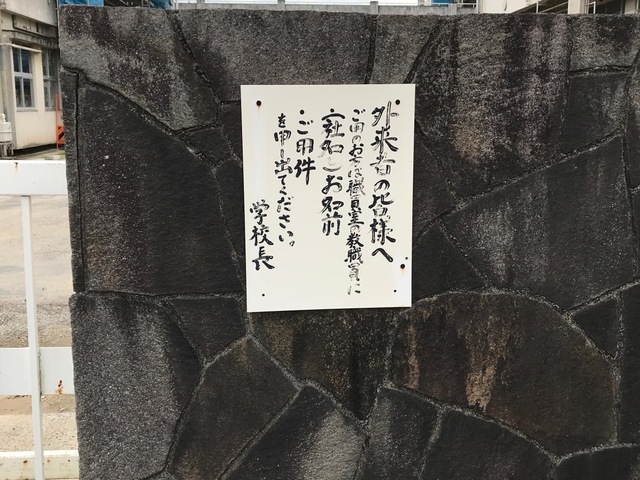 外来者の皆様へ
ご用のお方は職員室の教職員に
(社名)お名前
・ご用件
を申し出てください。
学校長